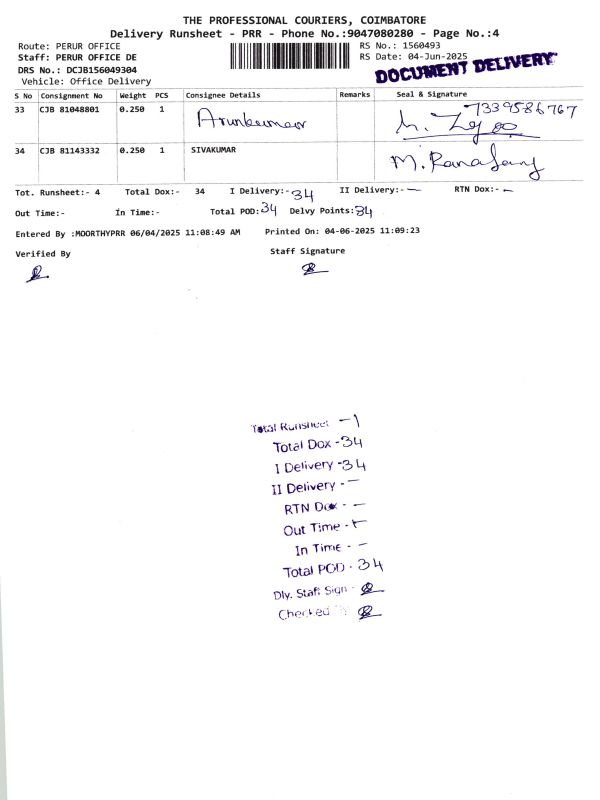 THE PROFESSIONAL COURIERS, COIMBATORE
Delivery Runsheet - PRR - Phone No.:9047080280 - Page No.:4
Route: PERUR OFFICE RS No.: 1560493
Staff: PERUR OFFICE DE RS Date: 04-Jun-2025
DRS No.: DCJB156049304 DOCUMENT DELIVERY
Vehicle: Office Delivery
S No Consignment No Weight PCS Consignee Details Remarks Seal & Signature
33 CJB 81048801 0.250 1 Arunkumar 7339586767
34 CJB 81143332 0.250 1 SIVAKUMAR
Tot. Runsheet:- 4 Total Dox:- 34 I Delivery:-34 II Delivery:- — RTN Dox:- —
Out Time:- In Time:- Total POD:34 Delvy Points:34
Entered By :MOORTHYPRR 06/04/2025 11:08:49 AM Printed On: 04-06-2025 11:09:23
Verified By Staff Signature
Total Runsheet - 1
Total Dox -34
I Delivery -34
II Delivery - —
RTN Dox - —
Out Time -
In Time - —
Total POD - 34
Dly. Staff Sign -
Checked